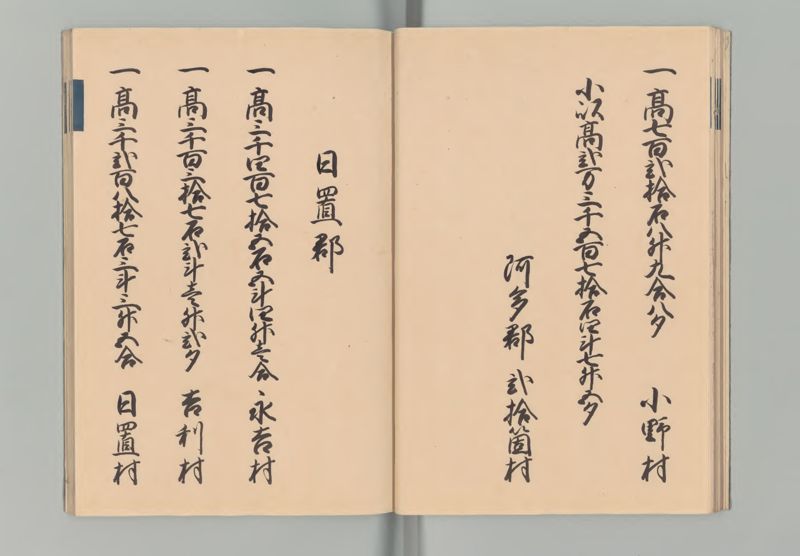 一高七百弐拾石八升九合八夕 小野村
小以高弐万三千五百七拾石四斗七升五夕
阿多郡 弐拾箇村
日置郡
一高三千四百七拾五石五斗四升壱合 永吉村
一高三千百三拾七石弐斗壱升弐夕 吉利村
一高三千弐百八拾七石三斗三升五合 日置村